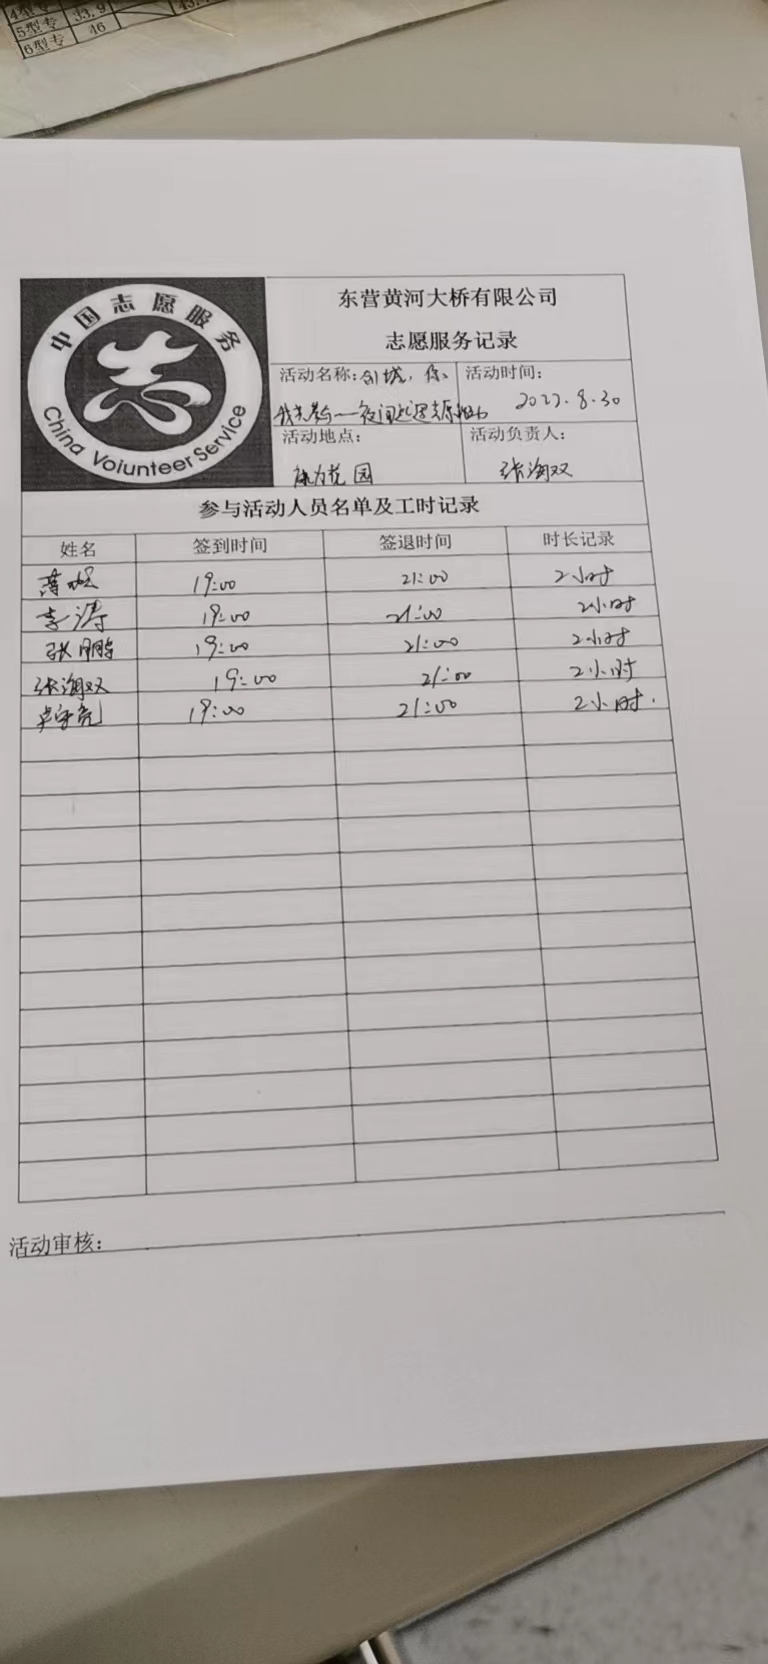 5型专 33.9
6型专 46
中国志愿服务
China Voiunteer Service
东营黄河大桥有限公司
志愿服务记录
活动名称:创城，你、 活动时间:
我共参与一夜间 2022.8.30
活动地点: 活动负责人:
花园 张海双
参与活动人员名单及工时记录
姓名 签到时间 签退时间 时长记录
19:00 21:00 2小时
李涛 19:00 21:00 2小时
张鹏 19:00 21:00 2小时
张海双 19:00 21:00 2小时
19:00 21:00 2小时.
活动审核: